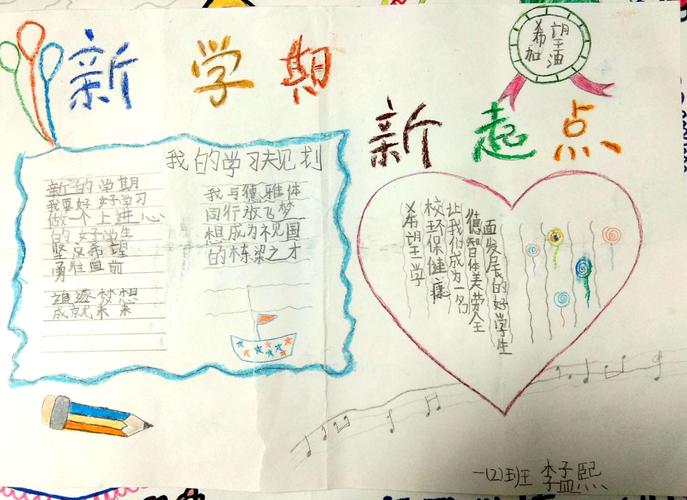 新学期
新起点
希望
加油
我的学习规划
新的学期
我要好好学习
做一个上进心
的好学生
希望
勇往直前
追逐梦想
成就未来
我与德雅体
同行放飞梦
想成为祖国
的栋梁之才
希望学
校环保健康
让我们成为一名
德智体美劳全
面发展的好学生
一(2)班 李 熙